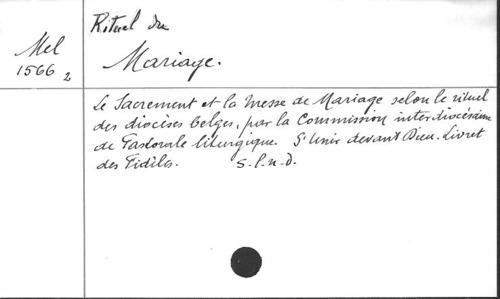 Rituel du
Mel
1566 2
Mariage.
Le Sacrement et la Messe de Mariage selon le rituel
des diocèses belges, par la Commission interdiocésaine
de Pastorale liturgique. S'Unir devant Dieu. Livret
des Fidèles. s.l.n.d.